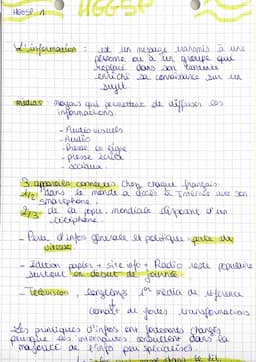 HGGSP 1
HGGSP
L'information : est un message transmis à une
personne ou à un groupe qui
dans son
enrichie sa connaissance sur un
sujet.
médias : moyens qui permettent de diffuser des
informations.
- Audiovisuels
- Audio
- Presse en ligne
- presse écrite
- sociaux
3 appareils connectés chez chaque français.
1/2 dans le monde a accès à Internet avec son
smartphone.
2/3 de la popu. mondiale disposent d'un
téléphone
- Peu d'infos générale et politique
vitesse
- Edition papier + site info + Radio reste populaire
surtout en début de journée
- Télévision, longtemps 1er média de référence
connaît de fortes transformations
Les pratiques d'infos ont fortement changés
puisque les internautes
majorité de l'info